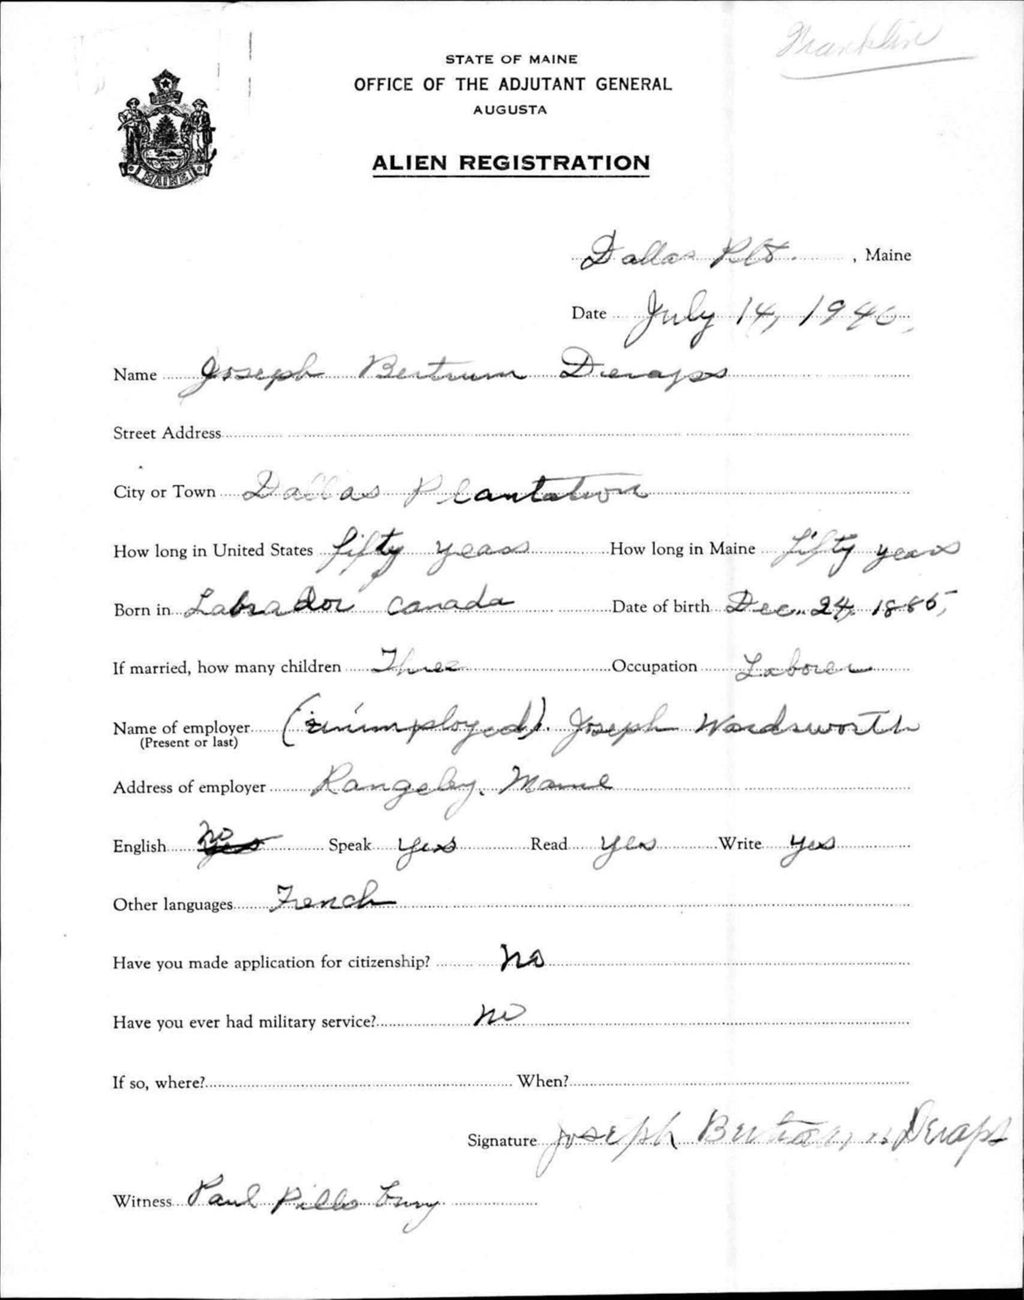 Franklin
STATE OF MAINE
OFFICE OF THE ADJUTANT GENERAL
AUGUSTA
ALIEN REGISTRATION
MAINE
Dallas Plt. , Maine
Date July 14, 1940.
Name Joseph Bertrum Deraps
Street Address
City or Town Dallas Plantation
How long in United States fifty years How long in Maine fifty years
Born in Labrador Canada Date of birth Dec. 24, 1885,
If married, how many children Three Occupation Laborer
Name of employer (unimployed). Joseph Wordsworth
(Present or last)
Address of employer Rangeley, Maine
English No Yes Speak yes Read yes Write yes
Other languages French
Have you made application for citizenship? No
Have you ever had military service? No
If so, where? When?
Signature Joseph Deraps
Witness Paul